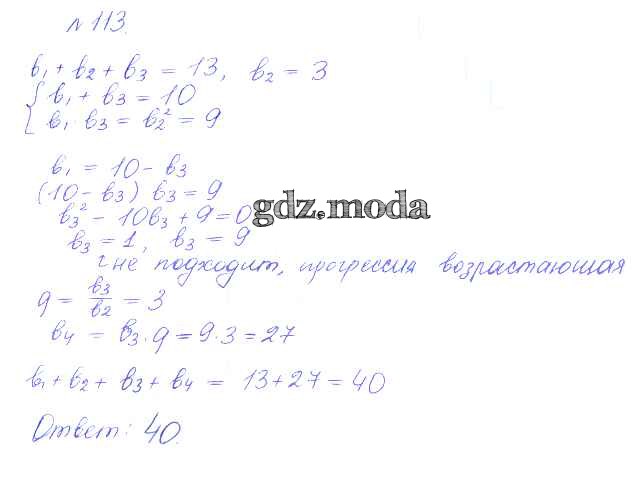 № 113.
b₁ + b₂ + b₃ = 13, b₂ = 3
{ b₁ + b₃ = 10
b₁ · b₃ = b₂² = 9
b₁ = 10 - b₃
(10 - b₃) b₃ = 9
b₃² - 10b₃ + 9 = 0
gdz.moda
b₃ = 1, b₃ = 9
не подходит, прогрессия возрастающая
q = b₃/b₂ = 3
b₄ = b₃ · q = 9 · 3 = 27
b₁ + b₂ + b₃ + b₄ = 13 + 27 = 40
Ответ: 40.